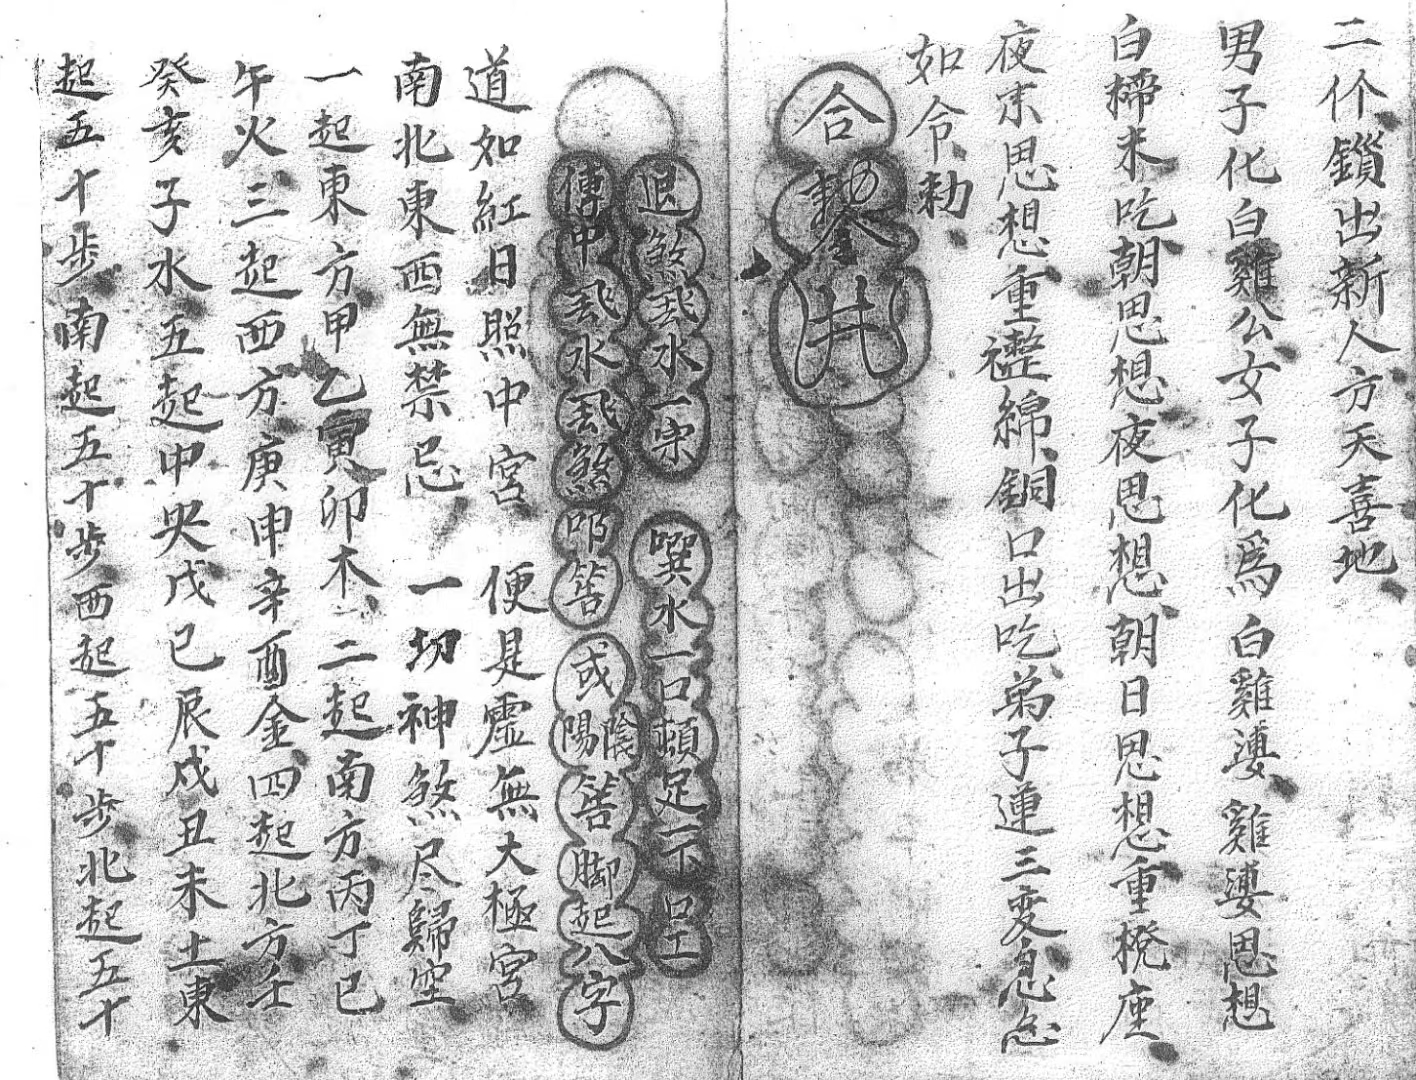 二伱鎖出新人方天喜地
男子化白雞公女子化爲白雞婆雞婆思想
白櫛未吃朝思想夜思想朝日思想重挽座
夜末思想重綿銅口出吃弟子連三变急急
如令勅
合
井
退煞丟水一宗 噀水一口頓足一下口工
傳中丟水丟煞叩筶 或陰陽筶脚起八字
道如紅日照中宮 便是虛無大極宮
南北東西無禁忌 一切神煞尽歸空
一起東方甲乙寅卯木二起南方丙丁巳
午火三起西方庚申辛酉金四起北方壬
癸亥子水五起中央戊己辰戌丑未土東
起五十步南起五十步西起五十步北起五十